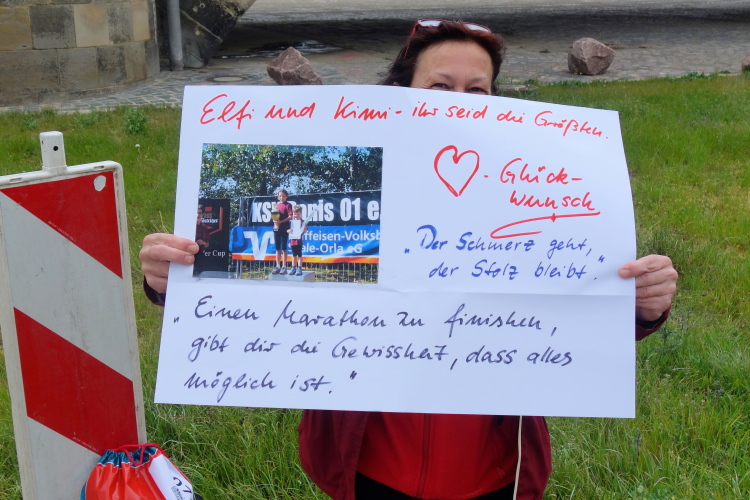 Elfi und Kimi - ihr seid die Größten.
Glück-
wunsch
"Der Schmerz geht,
der Stolz bleibt."
KSV
nis 01 e.
ffeisen-Volksb
ale-Orla eG
er Cup
"Einen Marathon zu finishen,
gibt dir die Gewissheit, dass alles
möglich ist."